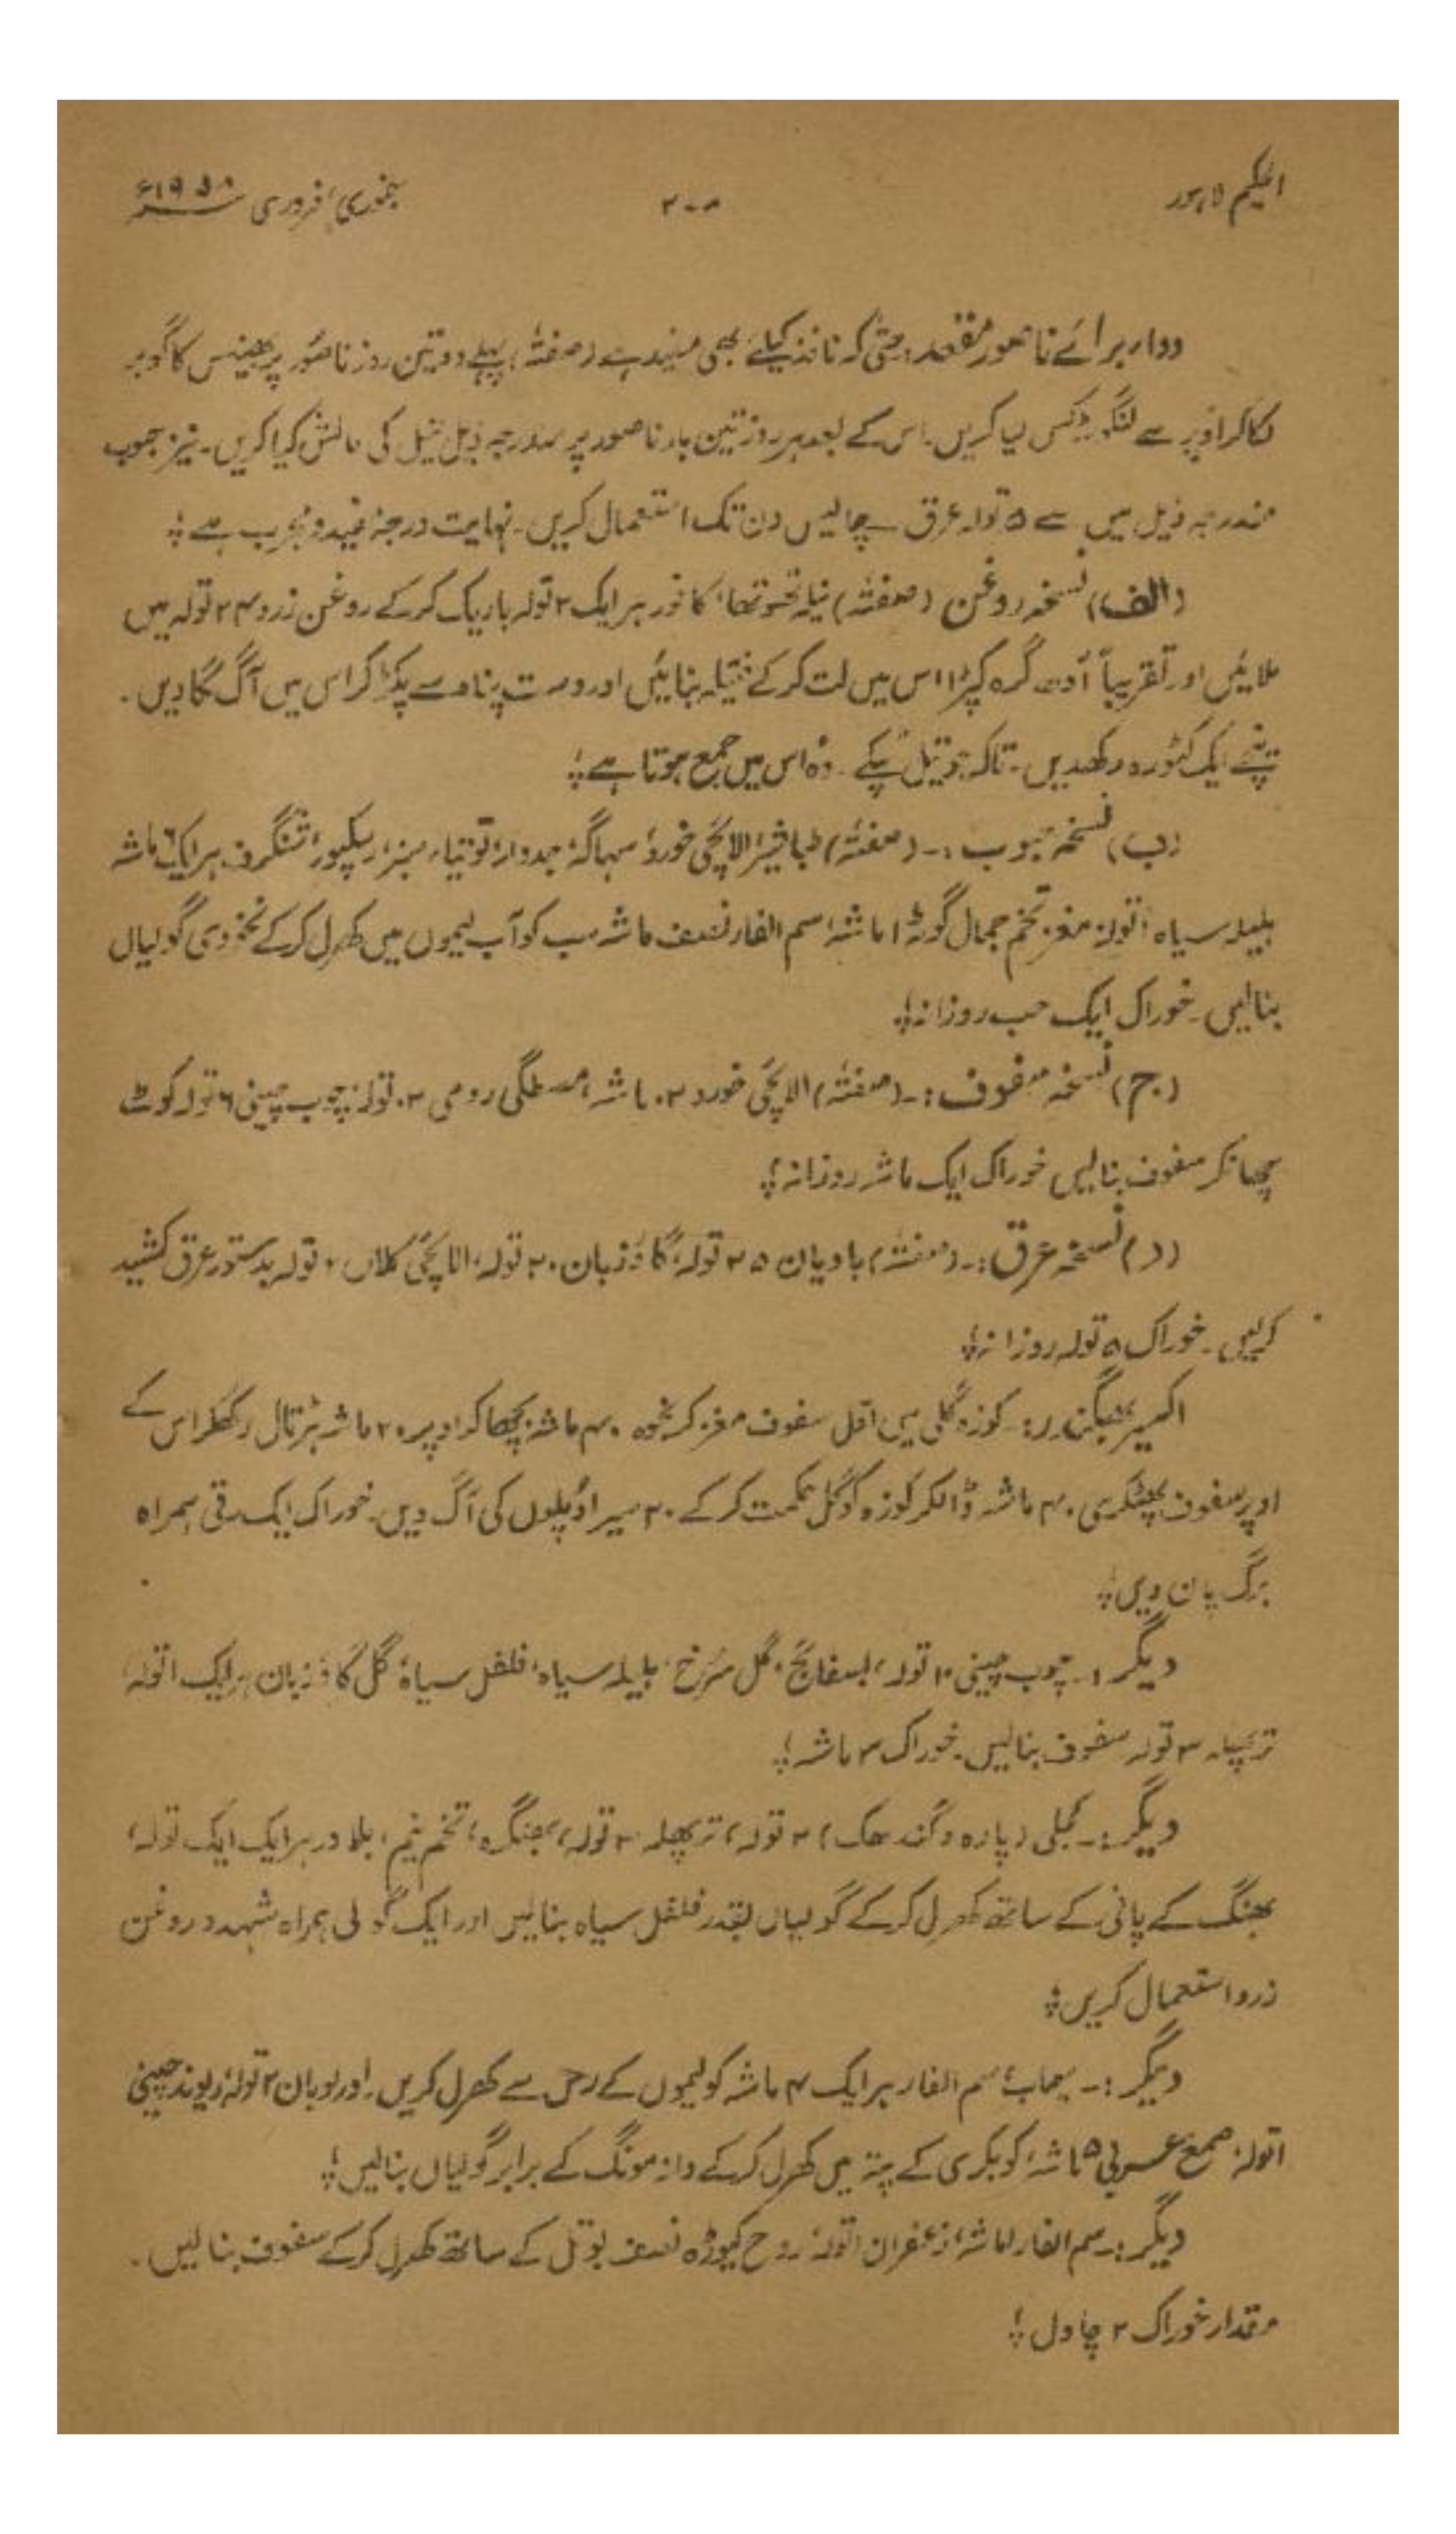 الحکیم لاہور ۲۰۸ جنوری، فروری ۱۹۵۸ء
دوا، برائے ناصور مقعد: حتیٰ کہ نافذ کیلئے بھی مفید ہے (صفتہٗ) پہلے دو تین روز ناصور پر بھینس کا گوبر
لگا کر اوپر سے لنگوٹ کس لیا کریں۔ اس کے بعد ہر روز تین بار ناصور پر مندرجہ ذیل تیل کی مالش کیا کریں۔ نیز حبوب
مندرجہ ذیل میں سے ۵ تولہ عرق چالیس دن تک استعمال کریں۔ نہایت درجہ مفید و مجرب ہے؛
(الف) نسخہ روغن (صفتہٗ) نیلہ تھوتھا، کافور ہر ایک ۲ تولہ باریک کرکے روغن زرد ۲۴ تولہ میں
ملائیں اور تقریباً آدھ گرہ کپڑا اس میں لت کرکے فتیلہ بنائیں اور دست پناہ سے پکڑ کر اس میں آگ لگا دیں۔
نیچے ایک کٹورہ رکھدیں۔ تاکہ جو تیل ٹپکے۔ وہ اس میں جمع ہوتا ہے؛
(ب) نسخہ حبوب :۔ (صفتہٗ) طباشیر، الائچی خورد، سہاگہ، جدوار، توتیاء سبز، رسکپور، شنگرف ہر ایک ۶ ماشہ
ہلیلہ سیاہ ۱ تولہ، مغز تخم جمال گوٹہ ۱ ماشہ، سم الفار نصف ماشہ سب کو آب لیموں میں کھرل کرکے نخودی گولیاں
بنالیں۔ خوراک ایک حب روزانہ؛
(ج) نسخہ سفوف :۔ (صفتہٗ) الائچی خورد ۲۰ ماشہ، مصطگی رومی ۲۰ تولہ، چوب چینی ۶ تولہ کوٹ
چھانکر سفوف بنالیں خوراک ایک ماشہ روزانہ؛
(د) نسخہ عرق :۔ (صفتہٗ) بادیان ۲۵ تولہ، گاؤزبان ۲۰ تولہ، الائچی کلاں تولہ بدستور عرق کشید
کرلیں۔ خوراک ۵ تولہ روزانہ؛
اکسیر بھگندر :۔ کوزہ گلی میں اول سفوف مغز کرنجوہ ۴۰ ماشہ بچھا کر اوپر ۲۰ ماشہ ہڑتال رکھکر اس کے
اوپر سفوف پھٹکری ۴۰ ماشہ ڈالکر کوزہ کو گل حکمت کرکے ۲۰ سیر اوپلوں کی آگ دیں۔ خوراک ایک رتی ہمراہ
برگ پان دیں؛
دیگر :۔ چوب چینی ۱۰ تولہ، بسفائج، گل سرخ، ہلیلہ سیاہ، فلفل سیاہ، گل گاؤزبان ہر ایک ۱ تولہ،
تر پھلہ ۳ تولہ سفوف بنالیں۔ خوراک ۳ ماشہ؛
دیگر :۔ کجلی (پارہ و گندھک) ۲ تولہ، تر پھلہ ۳ تولہ، بھنگرہ، تخم نیم، بلادر ہر ایک ایک تولہ،
بھنگ کے پانی کے ساتھ کھرل کرکے گولیاں بقدر فلفل سیاہ بنالیں اور ایک گولی ہمراہ شہد و روغن
زرد استعمال کریں؛
دیگر :۔ سیماب، سم الفار ہر ایک ۴ ماشہ کو لیموں کے رس سے کھرل کریں۔ اور لوبان ۲ تولہ، ریوند چینی
۱ تولہ، صمغ عربی ۵ ماشہ، کو بکری کے پتہ میں کھرل کرکے دانہ مونگ کے برابر گولیاں بنالیں؛
دیگر :۔ سم الفار ۱ ماشہ، زعفران ۱ تولہ، روح کیوڑہ نصف بوتل کے ساتھ کھرل کرکے سفوف بنالیں۔
مقدار خوراک ۲ چاول؛